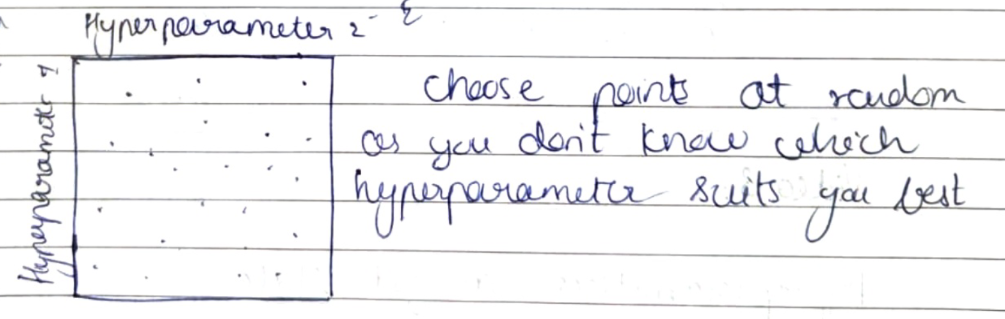 Hyperparameter 2 - ε
Hyperparameter 1
Choose points at random
as you don't know which
hyperparameter suits you best